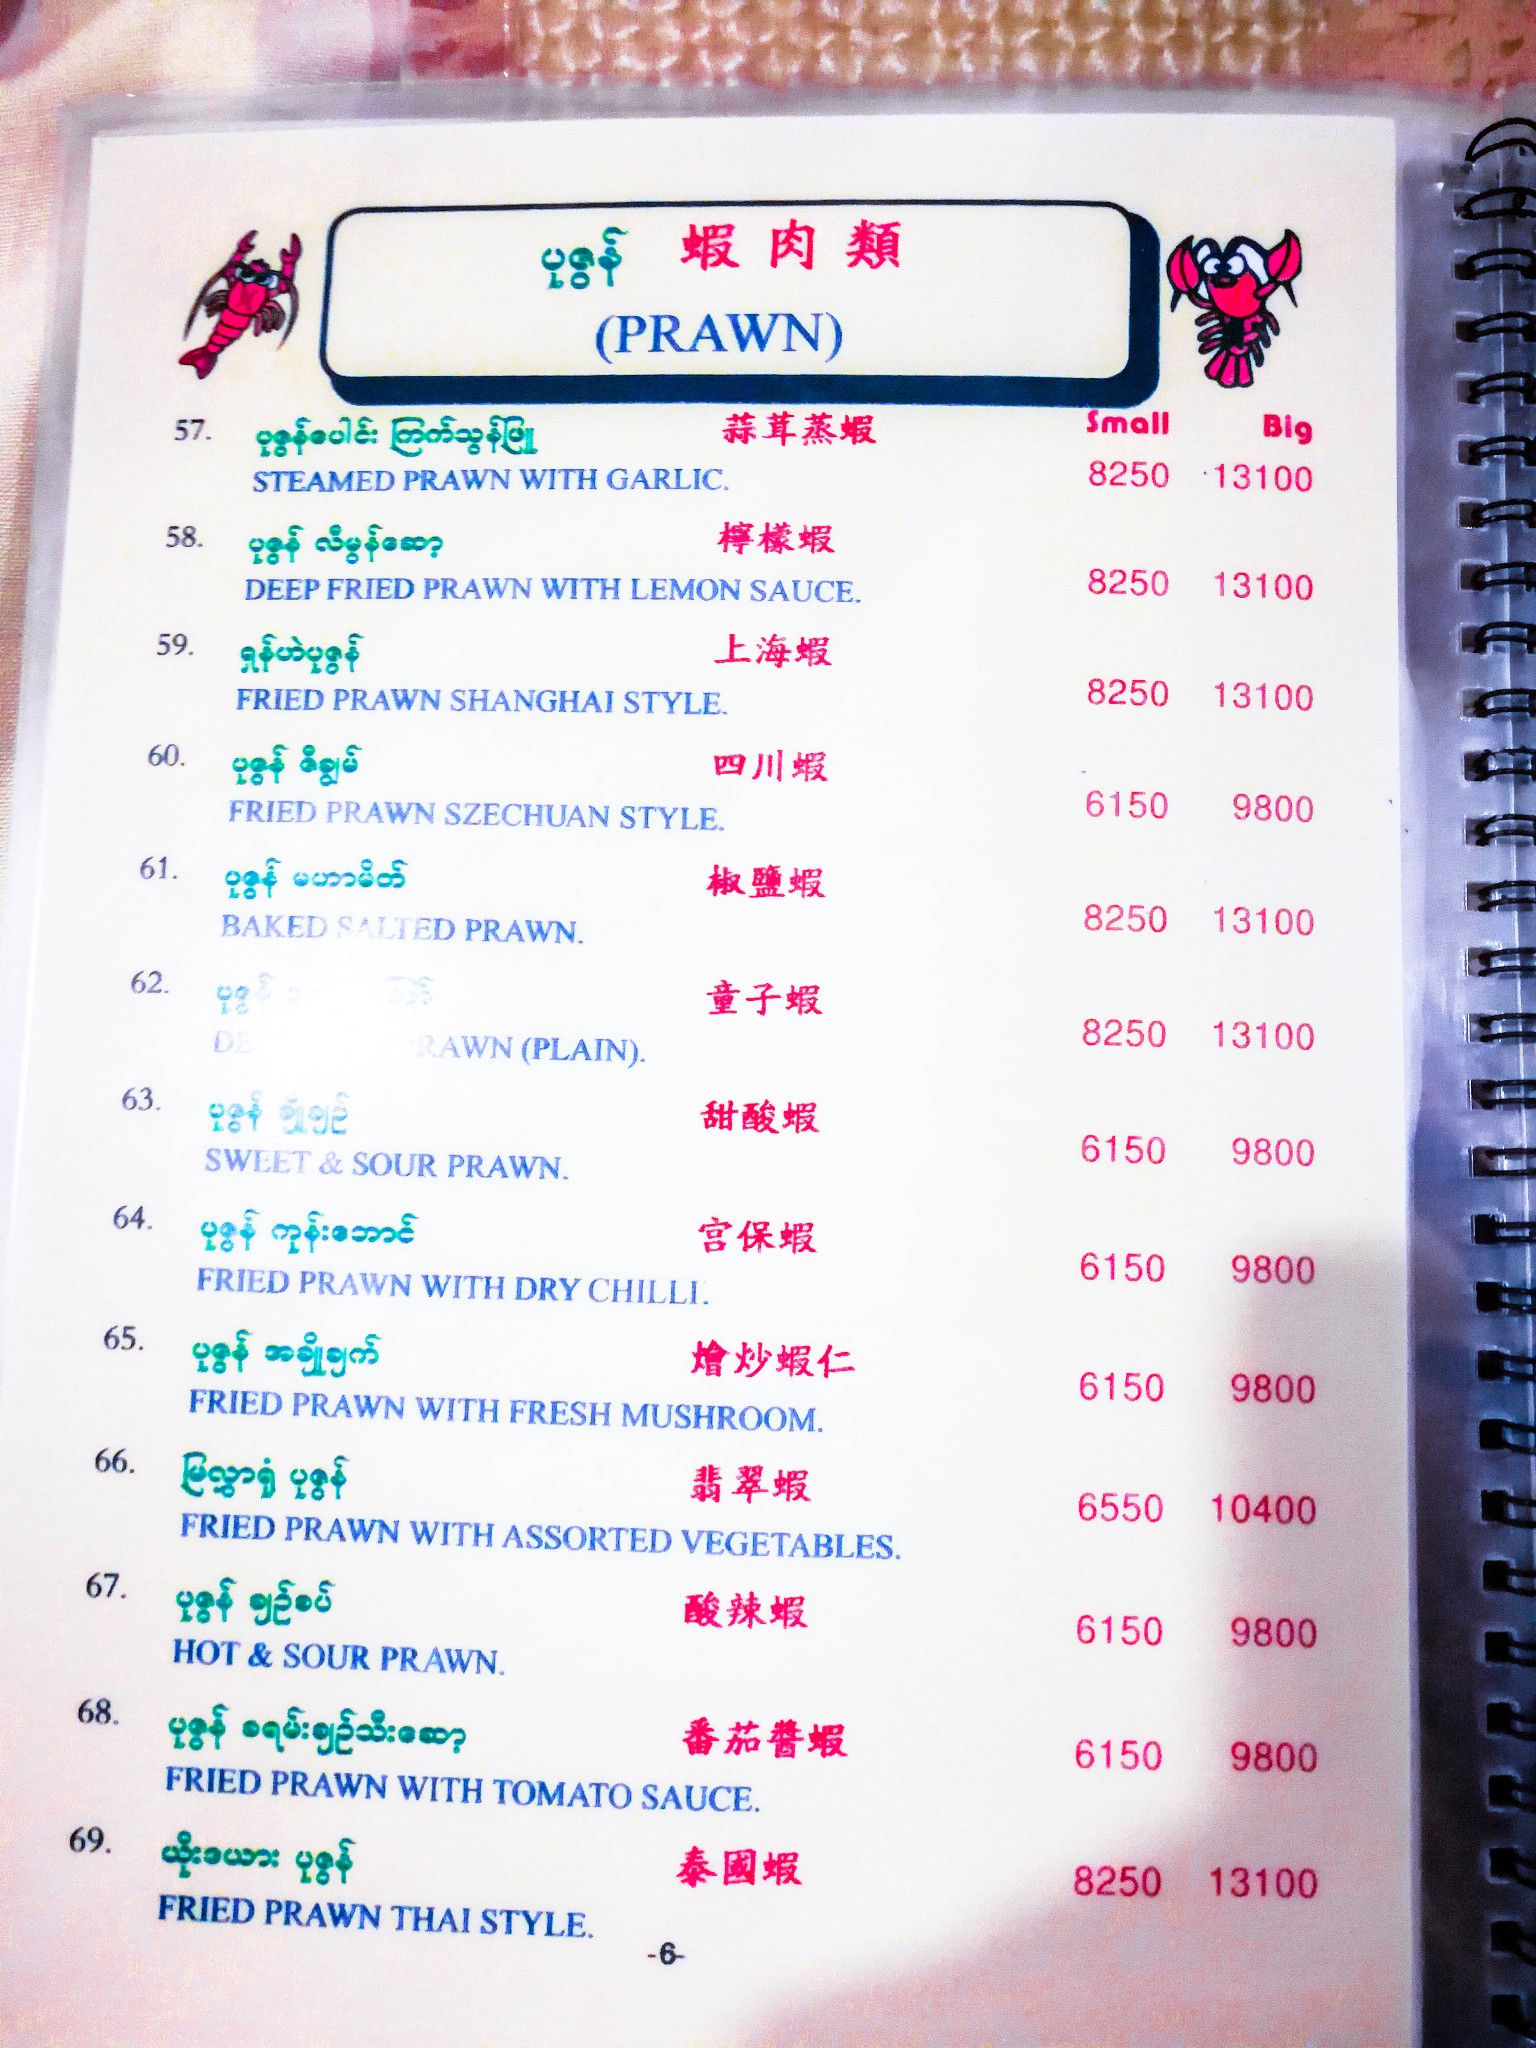 ပုဇွန် 蝦肉類
(PRAWN)
Small Big
57. ပုဇွန်ပေါင်း ကြက်သွန်ဖြူ 蒜茸蒸蝦
STEAMED PRAWN WITH GARLIC. 8250 13100
58. ပုဇွန် လီမွန်ဆော့ 檸檬蝦
DEEP FRIED PRAWN WITH LEMON SAUCE. 8250 13100
59. ရှန်ဟဲပုဇွန် 上海蝦
FRIED PRAWN SHANGHAI STYLE. 8250 13100
60. ပုဇွန် ဇီချွမ် 四川蝦
FRIED PRAWN SZECHUAN STYLE. 6150 9800
61. ပုဇွန် မဟာမိတ် 椒鹽蝦
BAKED SALTED PRAWN. 8250 13100
62. ပုဇွန် 童子蝦
PRAWN (PLAIN). 8250 13100
63. ပုဇွန် ချိုချဉ် 甜酸蝦
SWEET & SOUR PRAWN. 6150 9800
64. ပုဇွန် ကုန်းဘောင် 宫保蝦
FRIED PRAWN WITH DRY CHILLI. 6150 9800
65. ပုဇွန် အချိုချက် 燴炒蝦仁
FRIED PRAWN WITH FRESH MUSHROOM. 6150 9800
66. မြလွှာရုံ ပုဇွန် 翡翠蝦
FRIED PRAWN WITH ASSORTED VEGETABLES. 6550 10400
67. ပုဇွန် ချဉ်စပ် 酸辣蝦
HOT & SOUR PRAWN. 6150 9800
68. ပုဇွန် ခရမ်းချဉ်သီးဆော့ 番茄醬蝦
FRIED PRAWN WITH TOMATO SAUCE. 6150 9800
69. ယိုးဒယား ပုဇွန် 泰國蝦
FRIED PRAWN THAI STYLE. 8250 13100
-6-